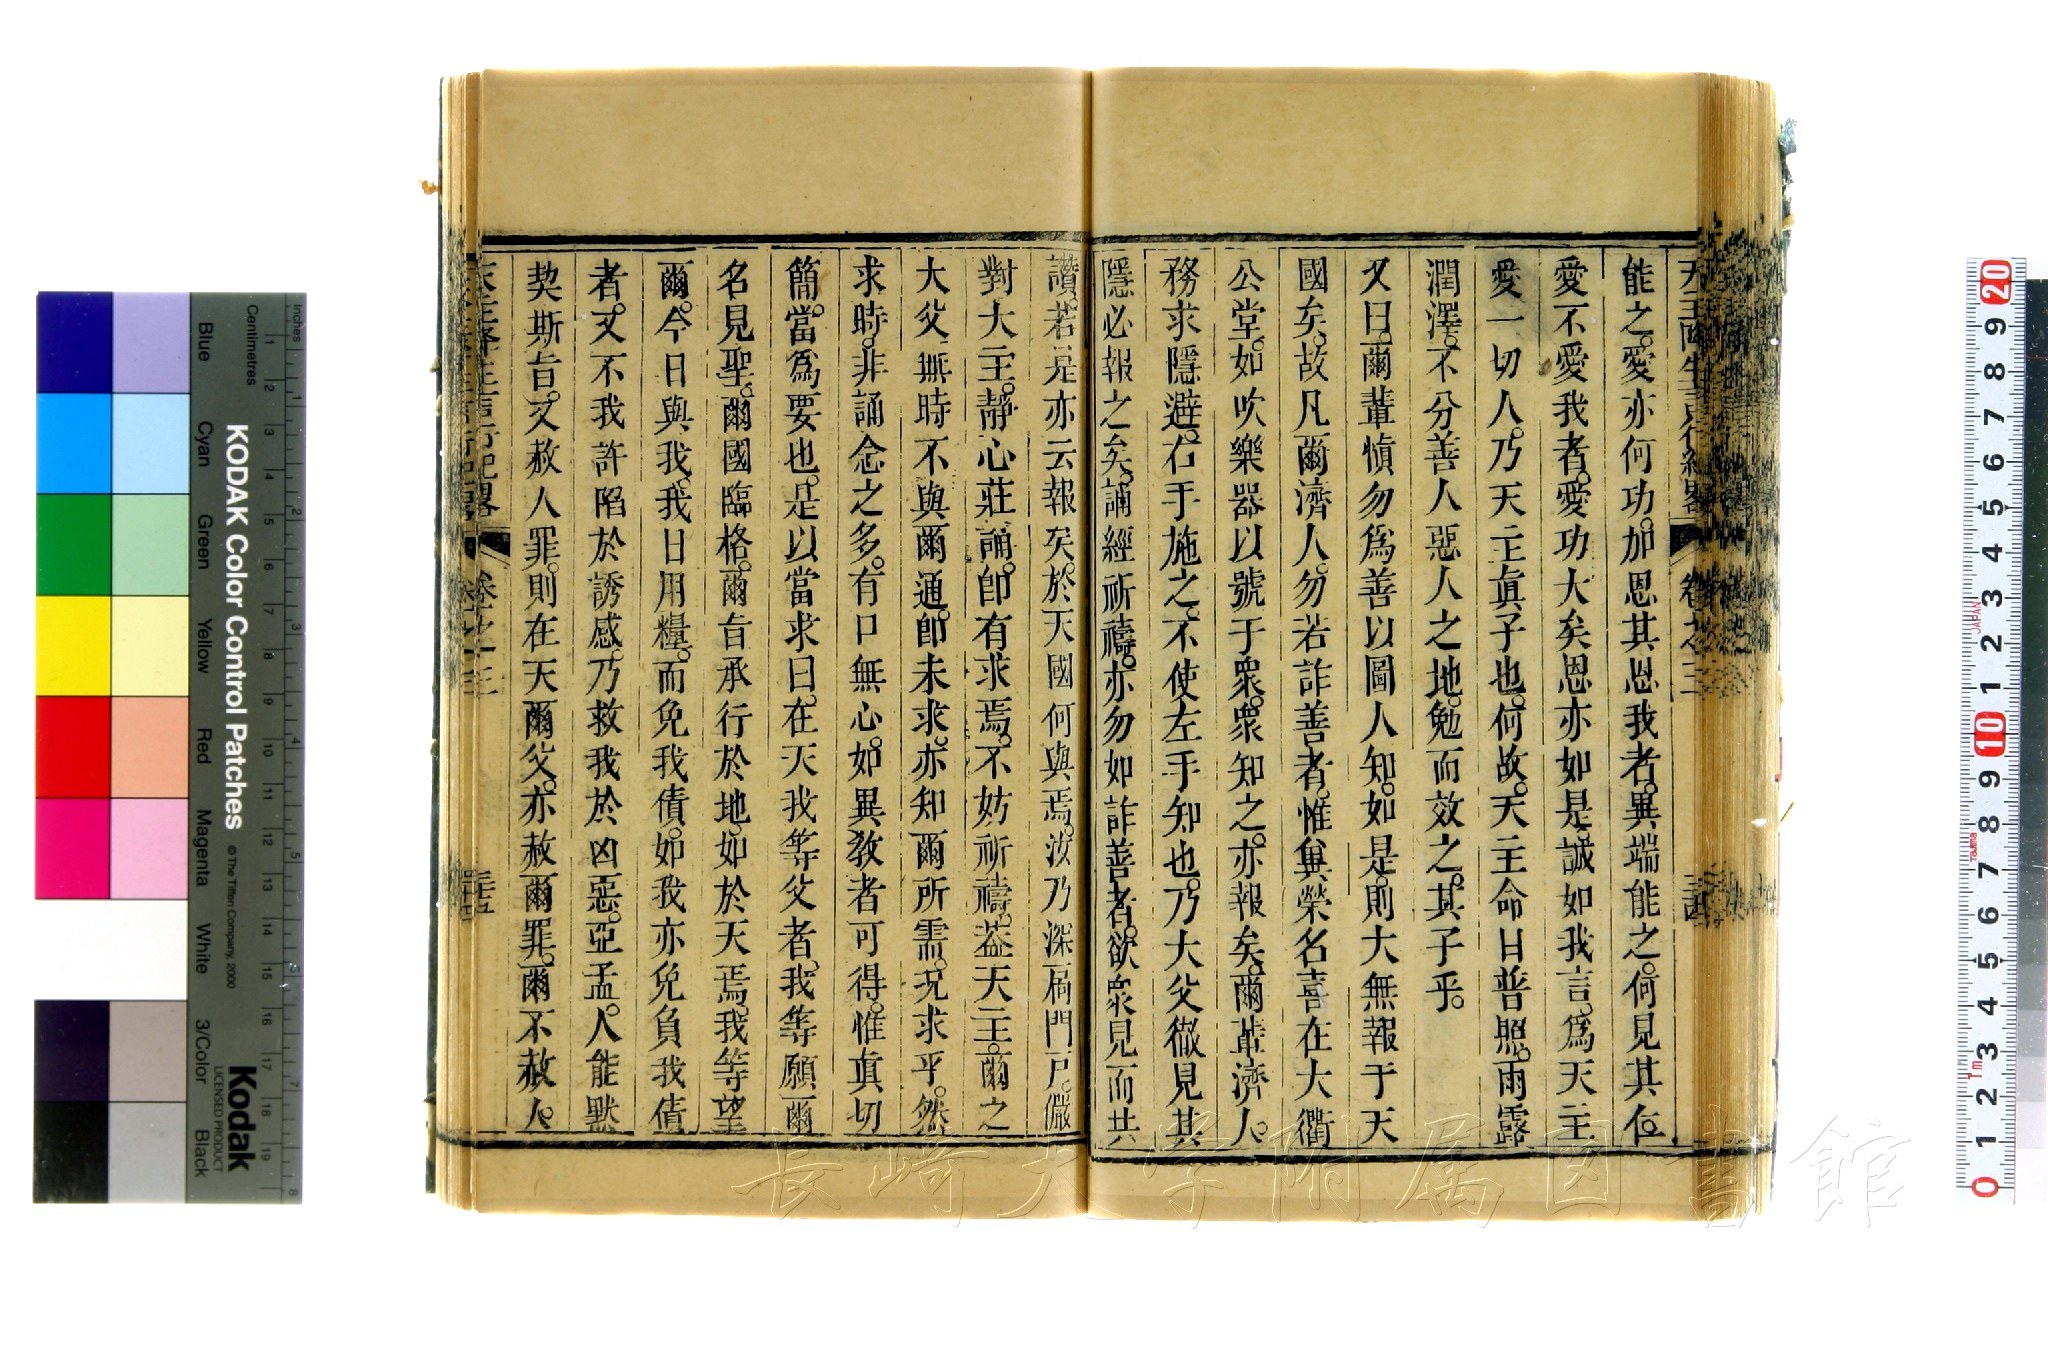 天主降生言行紀畧 卷之三 三四
能之。愛亦何功。加恩其恩我者。異端能之。何見其仁。
愛不愛我者。愛功大矣恩亦如是。誠如我言。爲天主
愛一切人。乃天主眞子也。何故。天主命日普照。雨露
潤澤。不分善人惡人之地。勉而效之。其子乎。
又曰。爾輩愼勿爲善以圖人知。如是。則大無報于天
國矣。故凡爾濟人。勿若詐善者。惟兾榮名喜在大衢
公堂。如吹樂器以號于衆。衆知之。亦報矣。爾輩濟人。
務求隱避。右手施之。不使左手知也。乃大父徹見其
隱必報之矣。誦經祈禱。亦勿如詐善者。欲衆見而共
讚。若是亦云報矣。於天國何與焉。汝乃深扃門戸。儼
對大主。靜心莊誦。卽有求焉。不妨祈禱。葢天主。爾之
大父。無時不與爾通。卽未求。亦知爾所需。况求乎。然
求時。非誦念之多。有口無心。如異敎者可得。惟眞切
簡。當爲要也。是以當求曰。在天我等父者。我等願爾
名見聖。爾國臨格。爾旨承行於地。如於天焉。我等望
爾。今日與我。我日用糧。而免我債。如我亦免負我債
者。又不我許陷於誘感。乃救我於凶惡。亞孟。人能默
契斯旨。又赦人罪。則在天爾父。亦赦爾罪。爾不赦人。
天主降生言行紀畧 卷之三 三五
長崎大学附属図書館
KODAK Color Control Patches
© The Tiffen Company, 2000
Kodak
LICENSED PRODUCT
Inches
Centimetres
Blue Cyan Green Yellow Red Magenta White 3/Color Black
JAPAN